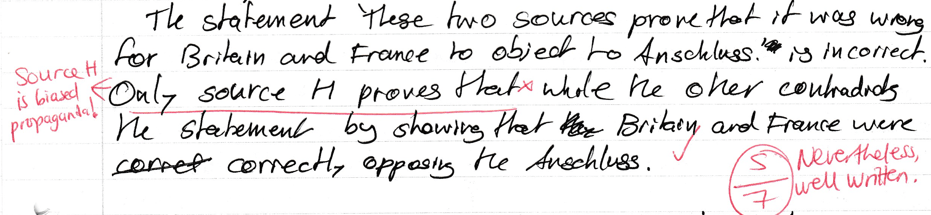 The statement "These two sources prove that it was wrong
for Britain and France to object to Anschluss." is incorrect.
Source H
is biased
propaganda!
Only source H proves that while the other contradicts
the statement by showing that Britain and France were
correctly opposing the Anschluss.
5/7
Nevertheless,
well written.